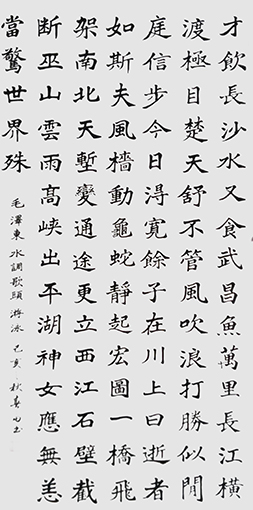 才飲長沙水又食武昌魚萬里長江橫
渡極目楚天舒不管風吹浪打勝似閒
庭信步今日淂寬餘子在川上曰逝者
如斯夫風檣動龜蛇靜起宏圖一橋飛
架南北天塹變通途更立西江石壁截
斷巫山雲雨高峽出平湖神女應無恙
當驚世界殊
毛澤東水調歌頭游泳己亥秋